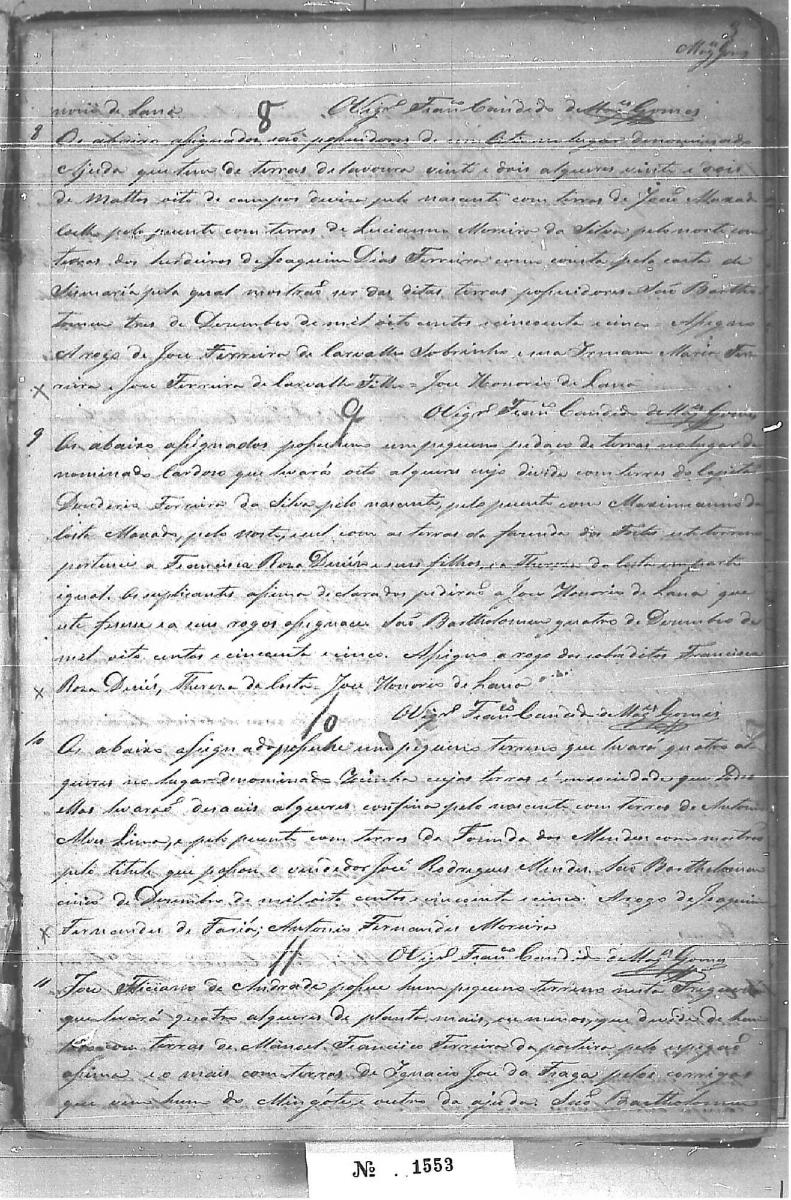 3
Mag.es Gomes
norio de Lana
8
O Vigr.o Fran.co Candido de Mag.es Gomes
8 Os abaixo assignados são possuidores de um Citio no lugar denominado
Ajuda que tem de terras de lavoura vinte e dois alqueres vinte e dois
de Mattos oito de campos devisa pelo nascente com terras de João Maxado
pelo puente com terras de Lucianno Moreira da Silva pelo norte com
terras dos herdeiros de Joaquim Dias Ferreira como consta pela carta de
Sismaria pela qual mostrão ser das ditas terras possuidores. São Bartho
lomeu tres de Dezembro de mil oito centos e cincoenta e cinco. Assigno
A rogo de Jose Ferreira de Carvalho Sobrinho e sua Irmam Maria Fer
reira e Jose Ferreira de Carvalho Filho = Jose Honorio de Lana
9
O Vigr.o Fran.co Candido de Mag.es Gomes
9 Os abaixo assignados possuimos um piqueno pedaço de terras no lugar de
nominado Cardoso que levará oito alqueres cujo divide com terras do Capitão
Ferreira da Silva pelo nascente, pelo puente com Maximianno da
Costa Maxado, pelo norte, e sul com as terras da fazenda dos Fortes este terreno
pertence a Francisca Roza e seus filhos, e a Thereza da Costa em parte
igual. Os suplicantes asima declarados pedirão a Jose Honorio de Lana que
este fizesse e a seus rogos assignace. São Bartholomeu quatro de Dezembro de
mil oito centos e cincoenta e cinco. Assigno a rogo dos sobreditos Francisca
Roza, Thereza da Costa. Jose Honorio de Lana
10
O Vigr.o Fran.co Candido de Mag.es Gomes
10 Os abaixo assignado possuhe um piqueno terreno que levará quatro al
queres no lugar denominado cujas terras é em sociedade que
levarão desaseis alqueres confina pelo nascente com terras de Antonio
Alves Lima, e pelo puente com terras da Fazenda dos Mendes como mostra
pelo titulo que passou o vendedor José Rodrigues Mendes. São Bartholomeu
cinco de Dezembro de mil oito centos e cincoenta e cinco. A rogo de Joaquim
Fernandes de Faria, Antonio Fernandes Moreira
11
O Vigr.o Fran.co Candido de Mag.es Gomes
11 Jose Feliciano de Andrade possue hum piqueno terreno nesta Freguezia
que levará quatro alqueres de planta mais, ou menos, que divide de hum
lado com terras de Manoel Francisco Ferreira da porteira pelo espigão
asima e o mais com terras de Ignacio Jose da Fraga pelos corrigos
que vem hum do Mingóte e outro da ajuda. São Bartholomeu
Nº 1553